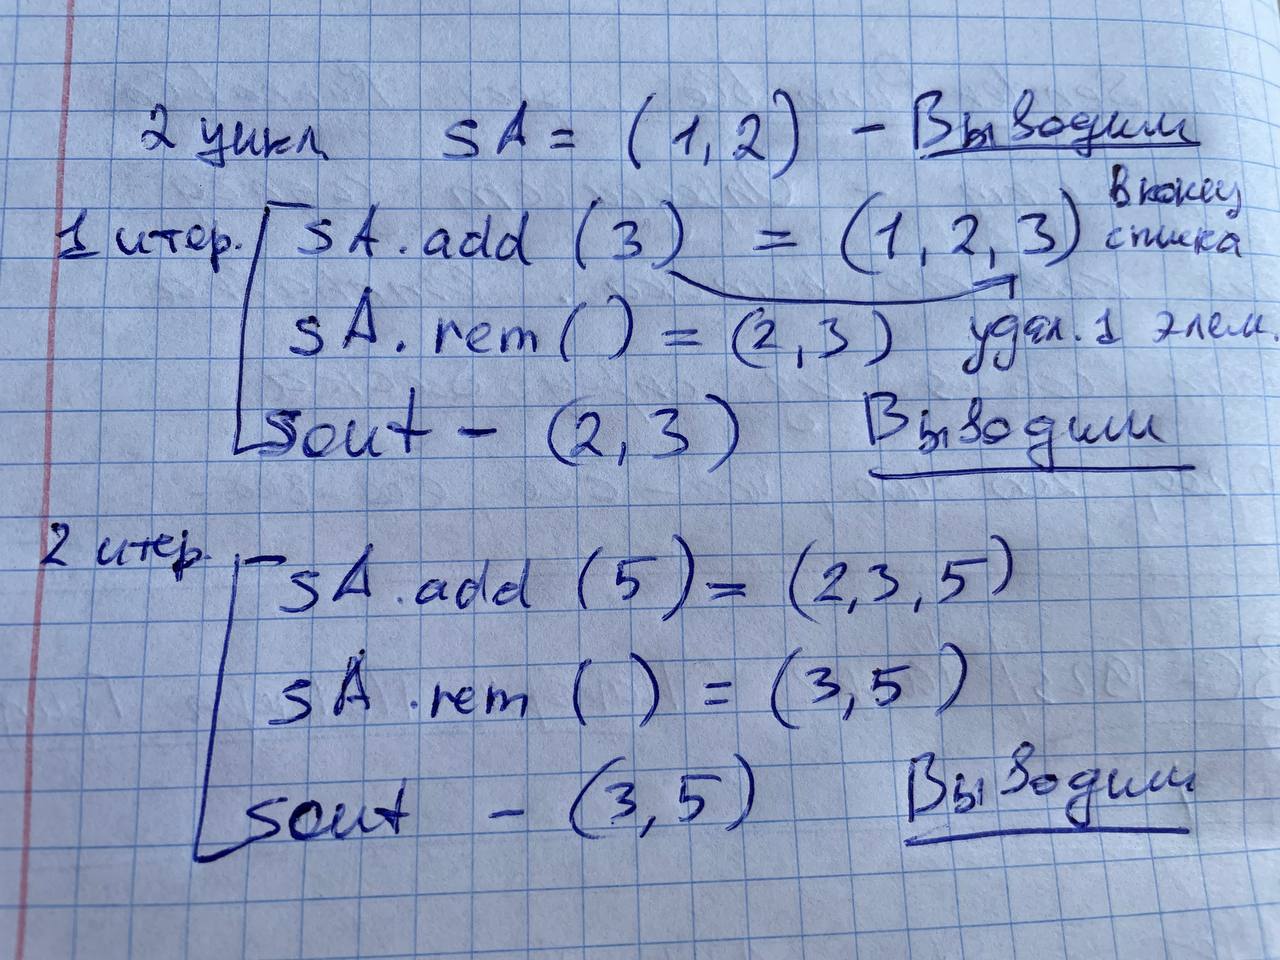 2 цикл sA = (1, 2) - Выводим
1 итер. sA.add (3) = (1, 2, 3) в конец списка
sA.rem ( ) = (2, 3) удал. 1 элем.
sout - (2, 3) Выводим
2 итер. sA.add (5) = (2, 3, 5)
sA.rem ( ) = (3, 5)
sout - (3, 5) Выводим